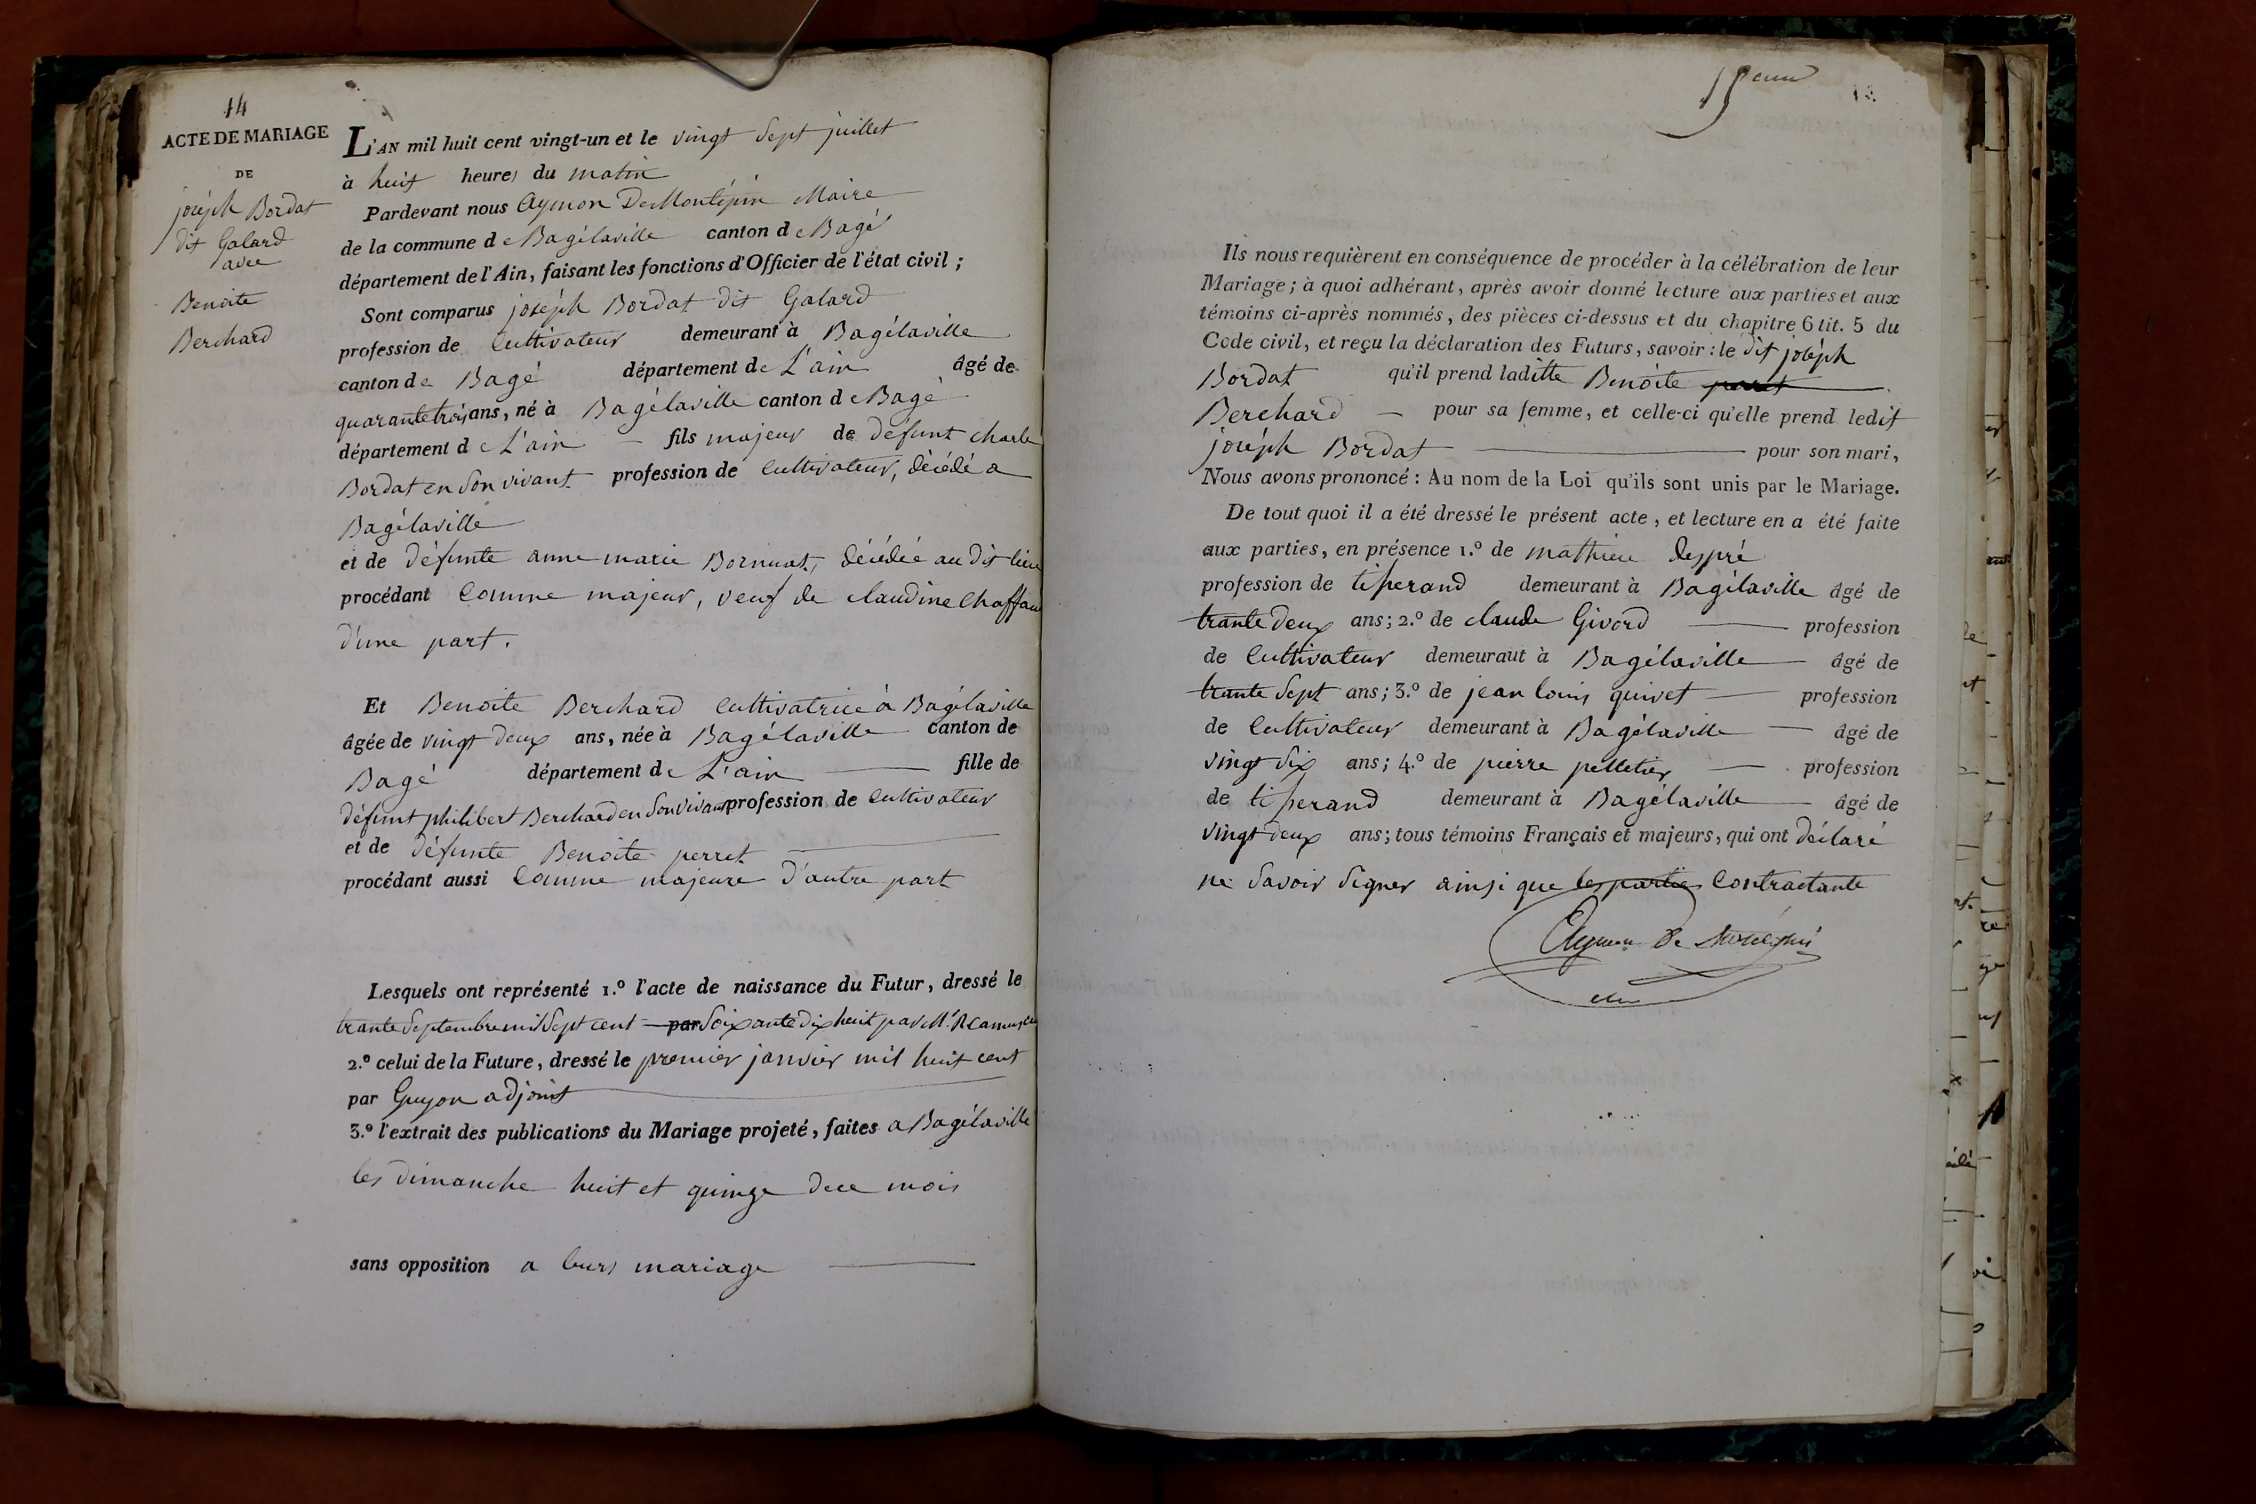 14
ACTE DE MARIAGE
DE
joséph Bordat
dit Galard
avec
Benoite
Berchard
L'AN mil huit cent vingt-un et le vingt Sept juillet
à huit heures du matin
Pardevant nous Aymon DeMontépin Maire
de la commune de Bagélaville canton de Bagé
département de l'Ain, faisant les fonctions d'Officier de l'état civil ;
Sont comparus joséph Bordat dit Galard
profession de Cultivateur demeurant à Bagélaville
canton de Bagé département de L'ain âgé de
quarante trois ans, né à Bagélaville canton de Bagé
département de L'ain fils majeur de défunt charle
Bordat en Son vivant profession de Cultivateur, décédé a
Bagélaville
et de défunte anne marie Bornuat, décédée au dit lieu
procédant Comme majeur, veuf de claudine Chaffau
d'une part.
Et Benoite Berchard Cultivatrice à Bagélaville
âgée de vingt deux ans, née à Bagélaville canton de
Bagé département de L'ain fille de
défunt philibert Berchard en Son vivant profession de Cultivateur
et de défunte Benoite perret
procédant aussi Comme majeure d'autre part
Lesquels ont représenté 1.º l'acte de naissance du Futur, dressé le
trante Septembre mil Sept cent par Soixante dix huit par Mr.
2.º celui de la Future, dressé le premier janvier mil huit cent
par Guyon adjoint
3.º l'extrait des publications du Mariage projeté, faites a Bagélaville
les dimanche huit et quinze dece mois
sans opposition a leurs mariage
Ils nous requièrent en conséquence de procéder à la célébration de leur
Mariage ; à quoi adhérant, après avoir donné lecture aux parties et aux
témoins ci-après nommés, des pièces ci-dessus et du chapitre 6 tit. 5 du
Code civil, et reçu la déclaration des Futurs, savoir : le dit joséph
Bordat qu'il prend laditte Benoite
Berchard pour sa femme, et celle-ci qu'elle prend ledit
joséph Bordat pour son mari,
Nous avons prononcé : Au nom de la Loi qu'ils sont unis par le Mariage.
De tout quoi il a été dressé le présent acte, et lecture en a été faite
aux parties, en présence 1.º de mathieu despré
profession de tisserand demeurant à Bagélaville âgé de
trante deux ans ; 2.º de claude Givord profession
de Cultivateur demeurant à Bagélaville âgé de
trante Sept ans ; 3.º de jean louis quivet profession
de Cultivateur demeurant à Bagélaville âgé de
vingt Six ans ; 4.º de pierre pelletier profession
de tisserand demeurant à Bagélaville âgé de
vingt deux ans ; tous témoins Français et majeurs, qui ont déclaré
ne Savoir Signer ainsi que les parties Contractante
Aymon De Montépin